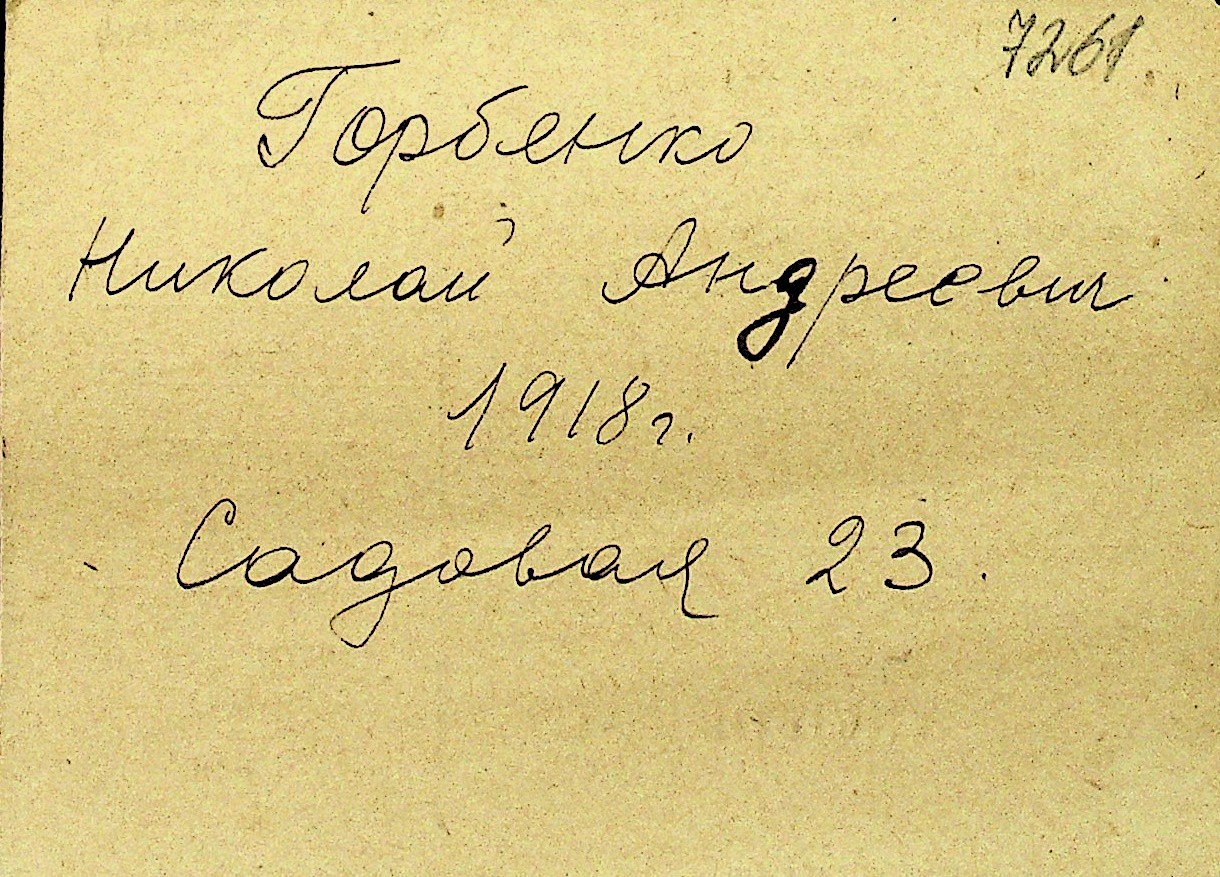 7261
Горбянко
Николай Андреевич
1918г.
Садовая 23.